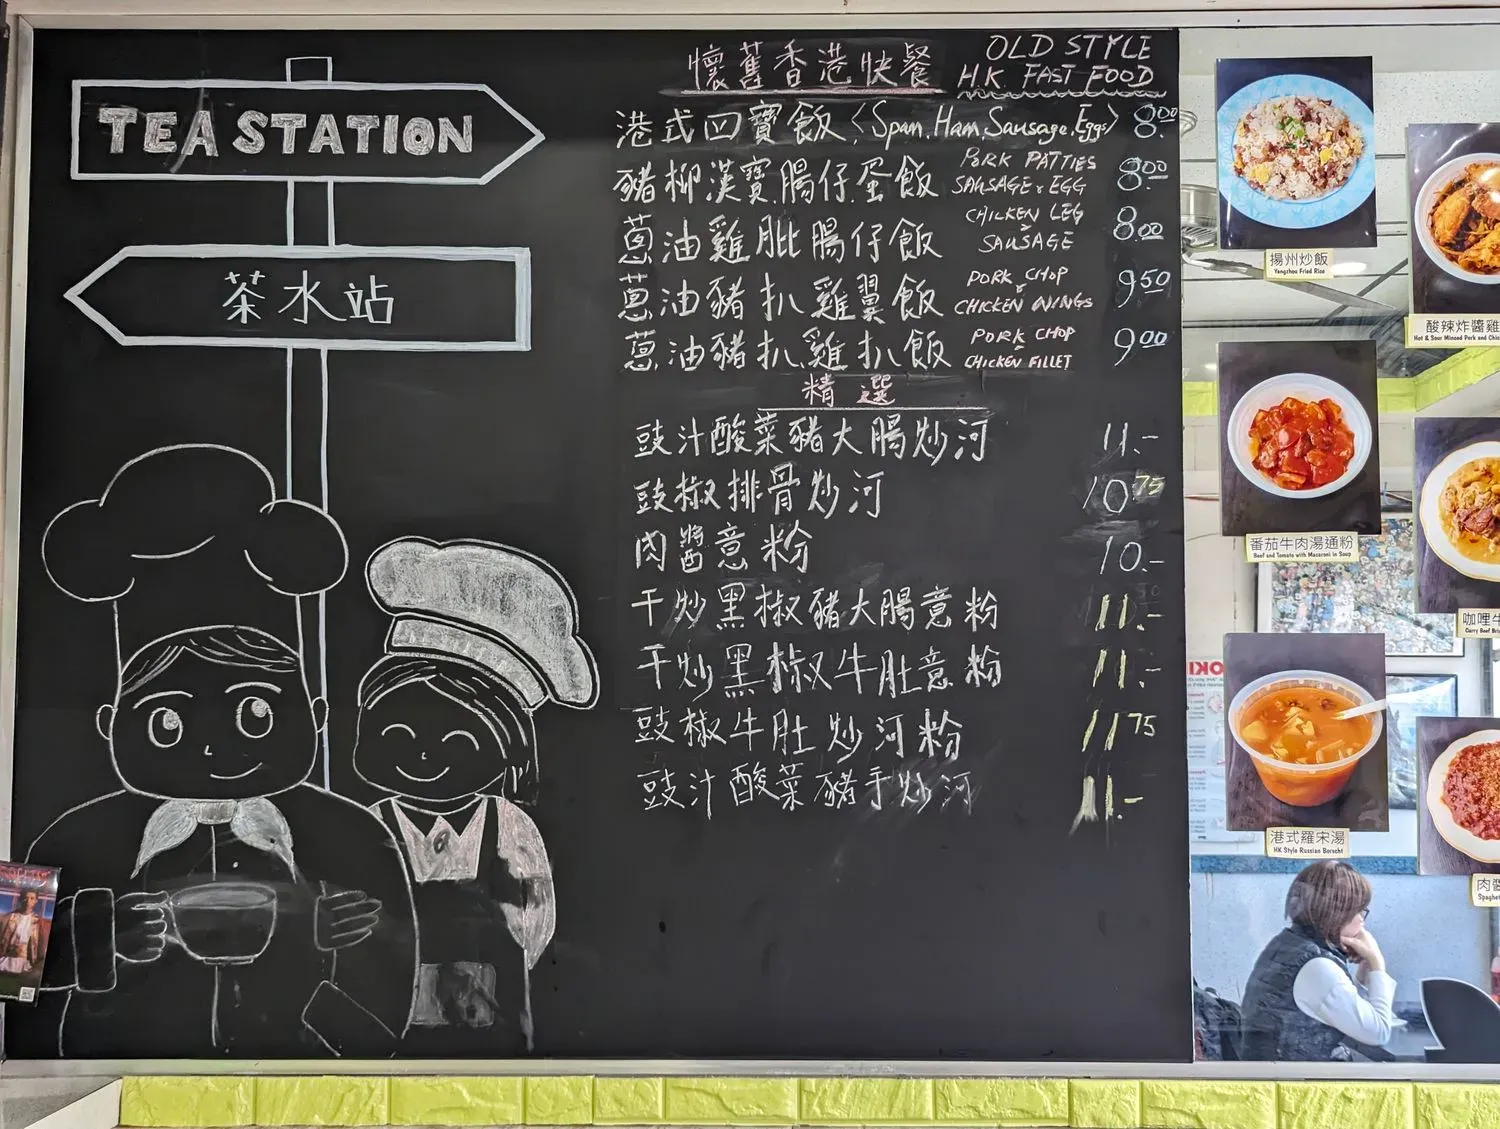 TEA STATION
茶水站
懷舊香港快餐 OLD STYLE HK FAST FOOD
港式四寶飯〈Spam, Ham, Sausage, Eggs〉 8.00
豬柳漢寶腸仔蛋飯 PORK PATTIES SAUSAGE & EGG 8.00
蔥油雞肶腸仔飯 CHICKEN LEG & SAUSAGE 8.00
蔥油豬扒雞翼飯 PORK CHOP & CHICKEN WINGS 9.50
蔥油豬扒雞扒飯 PORK CHOP & CHICKEN FILLET 9.00
精選
豉汁酸菜豬大腸炒河 11.-
豉椒排骨炒河 10.75
肉醬意粉 10.-
干炒黑椒豬大腸意粉 11.-
干炒黑椒牛肚意粉 11.-
豉椒牛肚炒河粉 11.75
豉汁酸菜豬手炒河 11.-
揚州炒飯
Yangzhou Fried Rice
酸辣炸醬雞
Hot & Sour Minced Pork and Chic
番茄牛肉湯通粉
Beef and Tomato with Macaroni in Soup
咖喱牛
Curry Beef Bri
港式羅宋湯
HK Style Russian Borscht
肉醬
Spaghet